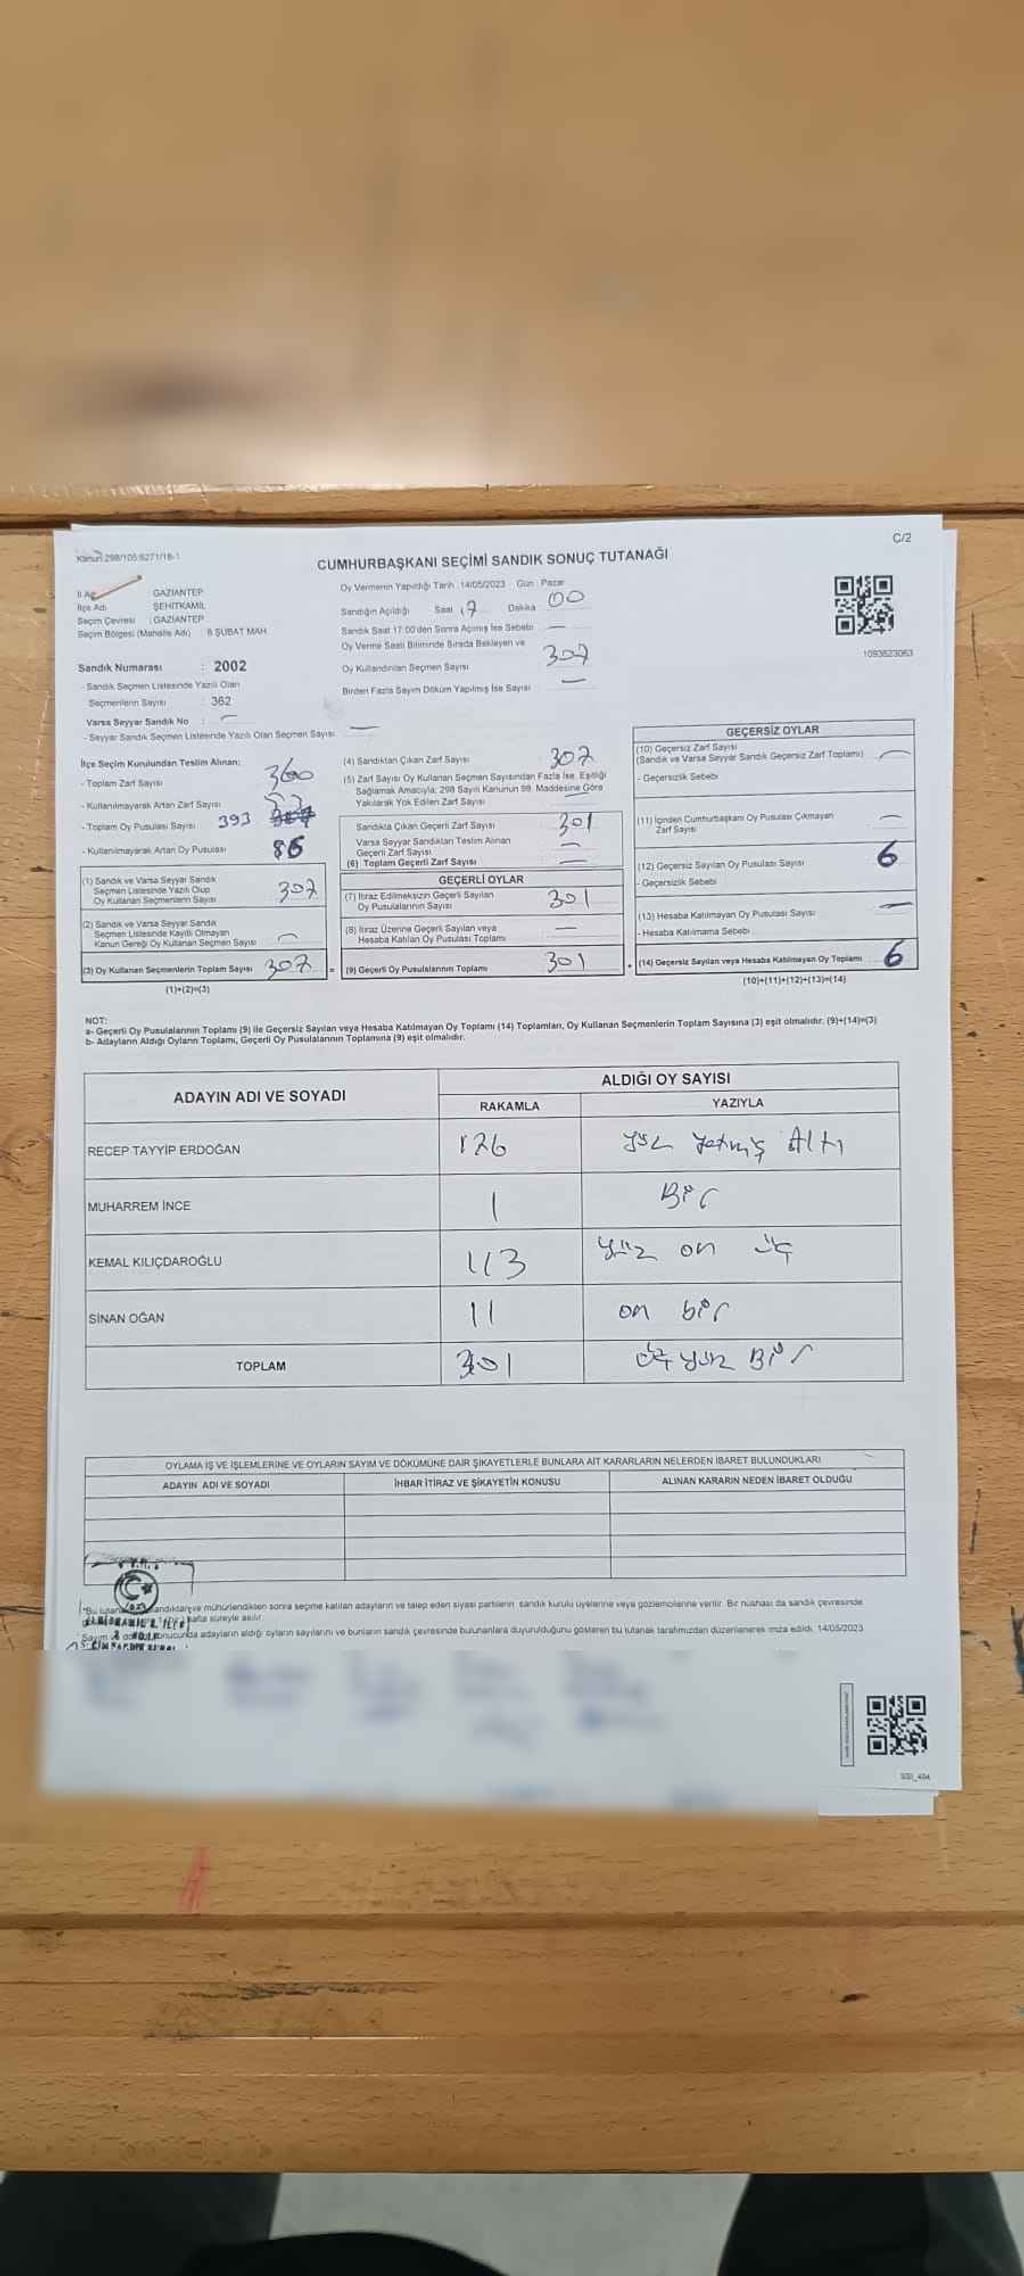 Kanun 298/105:6271/18-1
C/2
CUMHURBAŞKANI SEÇİMİ SANDIK SONUÇ TUTANAĞI
İl Adı GAZİANTEP
İlçe Adı ŞEHİTKAMİL
Seçim Çevresi : GAZİANTEP
Seçim Bölgesi (Mahalle Adı) 8 ŞUBAT MAH.
Sandık Numarası : 2002
- Sandık Seçmen Listesinde Yazılı Olan
Seçmenlerin Sayısı : 362
Varsa Seyyar Sandık No : —
- Seyyar Sandık Seçmen Listesinde Yazılı Olan Seçmen Sayısı —
Oy Vermenin Yapıldığı Tarih : 14/05/2023 Gün : Pazar
Sandığın Açıldığı Saat 17 Dakika 00
Sandık Saat 17:00'den Sonra Açılmış İse Sebebi —
Oy Verme Saati Bitiminde Sırada Bekleyen ve
Oy Kullandırılan Seçmen Sayısı 307
Birden Fazla Sayım Döküm Yapılmış İse Sayısı —
1093623063
İlçe Seçim Kurulundan Teslim Alınan:
- Toplam Zarf Sayısı 360
- Kullanılmayarak Artan Zarf Sayısı 53
- Toplam Oy Pusulası Sayısı 393
- Kullanılmayarak Artan Oy Pusulası 86
(1) Sandık ve Varsa Seyyar Sandık
Seçmen Listesinde Yazılı Olup
Oy Kullanan Seçmenlerin Sayısı 307
(2) Sandık ve Varsa Seyyar Sandık
Seçmen Listesinde Kayıtlı Olmayan
Kanun Gereği Oy Kullanan Seçmen Sayısı —
(3) Oy Kullanan Seçmenlerin Toplam Sayısı 307 =
(1)+(2)=(3)
(4) Sandıktan Çıkan Zarf Sayısı 307
(5) Zarf Sayısı Oy Kullanan Seçmen Sayısından Fazla İse, Eşitliği
Sağlamak Amacıyla; 298 Sayılı Kanunun 98. Maddesine Göre
Yakılarak Yok Edilen Zarf Sayısı —
Sandıkta Çıkan Geçerli Zarf Sayısı 301
Varsa Seyyar Sandıktan Teslim Alınan
Geçerli Zarf Sayısı —
(6) Toplam Geçerli Zarf Sayısı —
GEÇERLİ OYLAR
(7) İtiraz Edilmeksizin Geçerli Sayılan
Oy Pusulalarının Sayısı 301
(8) İtiraz Üzerine Geçerli Sayılan veya
Hesaba Katılan Oy Pusulası Toplamı —
(9) Geçerli Oy Pusulalarının Toplamı 301 +
GEÇERSİZ OYLAR
(10) Geçersiz Zarf Sayısı
(Sandık ve Varsa Seyyar Sandık Geçersiz Zarf Toplamı) —
- Geçersizlik Sebebi
(11) İçinden Cumhurbaşkanı Oy Pusulası Çıkmayan
Zarf Sayısı —
(12) Geçersiz Sayılan Oy Pusulası Sayısı 6
- Geçersizlik Sebebi
(13) Hesaba Katılmayan Oy Pusulası Sayısı —
- Hesaba Katılmama Sebebi
(14) Geçersiz Sayılan veya Hesaba Katılmayan Oy Toplamı 6
(10)+(11)+(12)+(13)=(14)
NOT:
a- Geçerli Oy Pusulalarının Toplamı (9) ile Geçersiz Sayılan veya Hesaba Katılmayan Oy Toplamı (14) Toplamları, Oy Kullanan Seçmenlerin Toplam Sayısına (3) eşit olmalıdır. (9)+(14)=(3)
b- Adayların Aldığı Oyların Toplamı, Geçerli Oy Pusulalarının Toplamına (9) eşit olmalıdır.
ADAYIN ADI VE SOYADI ALDIĞI OY SAYISI
RAKAMLA YAZIYLA
RECEP TAYYİP ERDOĞAN 176 yüz yetmiş Altı
MUHARREM İNCE 1 Bir
KEMAL KILIÇDAROĞLU 113 yüz on üç
SİNAN OĞAN 11 on bir
TOPLAM 301 üç yüz Bir
OYLAMA İŞ VE İŞLEMLERİNE VE OYLARIN SAYIM VE DÖKÜMÜNE DAİR ŞİKAYETLERLE BUNLARA AİT KARARLARIN NELERDEN İBARET BULUNDUKLARI
ADAYIN ADI VE SOYADI İHBAR İTİRAZ VE ŞİKAYETİN KONUSU ALINAN KARARIN NEDEN İBARET OLDUĞU
mühürlendikten sonra seçime katılan adayların ve talep eden siyasi partilerin sandık kurulu üyelerine veya gözlemcilerine verilir. Bir nüshası da sandık çevresinde
hafta süreyle asılır.
Sayım adayların aldığı oyların sayılarını ve bunların sandık çevresinde bulunanlara duyurulduğunu gösteren bu tutanak tarafımızdan düzenlenerek imza edildi. 14/05/2023